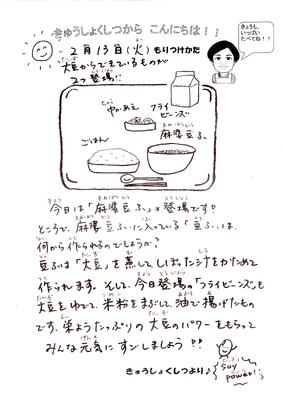 きゅうしょくしつから こんにちは！！
きょうも、
いっぱい
たべてね！！
2月13日(火) もりつけかた
大豆からできているものが
2つ登場！！
ちゅうかあえ
フライ
ビーンズ
ごはん
麻婆豆ふ
今日は「麻婆豆ふ」の登場です♪
ところで、麻婆豆ふに入っている「豆ふ」は、
何から作られるのでしょうか？
豆ふは「大豆」を蒸して、しぼった汁をかためて
作られます。そして、今日登場の「フライビーンズ」も
大豆をゆでて、米粉をまぶして、油で揚げたもの
です。栄ようたっぷりの大豆のパワーをもらって
みんな元気にすごしましょう！！
きゅうしょくしつより♪
Soy
power!